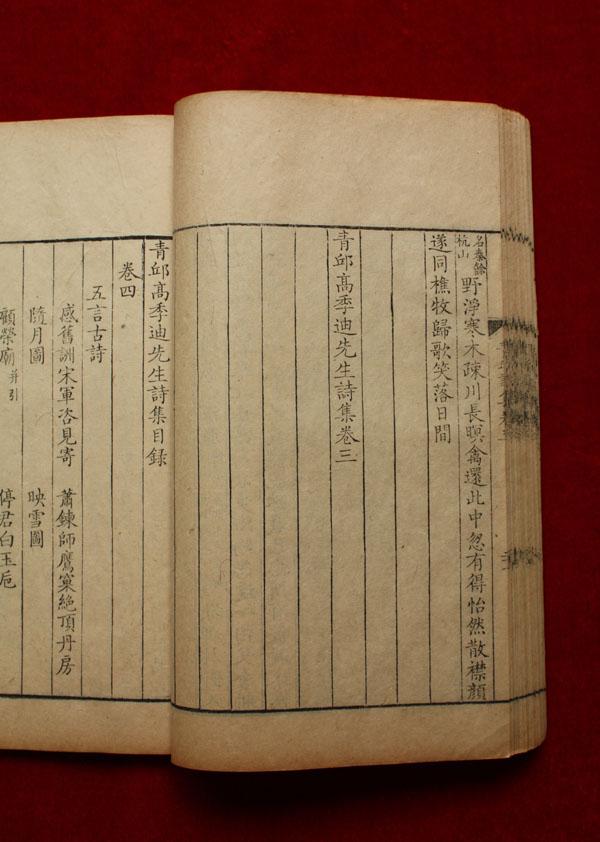 名秦餘
杭山
野淨寒木疎川長暝禽還此中忽有得怡然散襟顏
遂同樵牧歸歌笑落日間
青邱高季迪先生詩集卷三
青邱高季迪先生詩集目録
卷四
五言古詩
感舊詶宋軍咨見寄 蕭鍊師鷹窠絶頂丹房
隨月圖 映雪圖
顧榮廟 并引 停君白玉巵